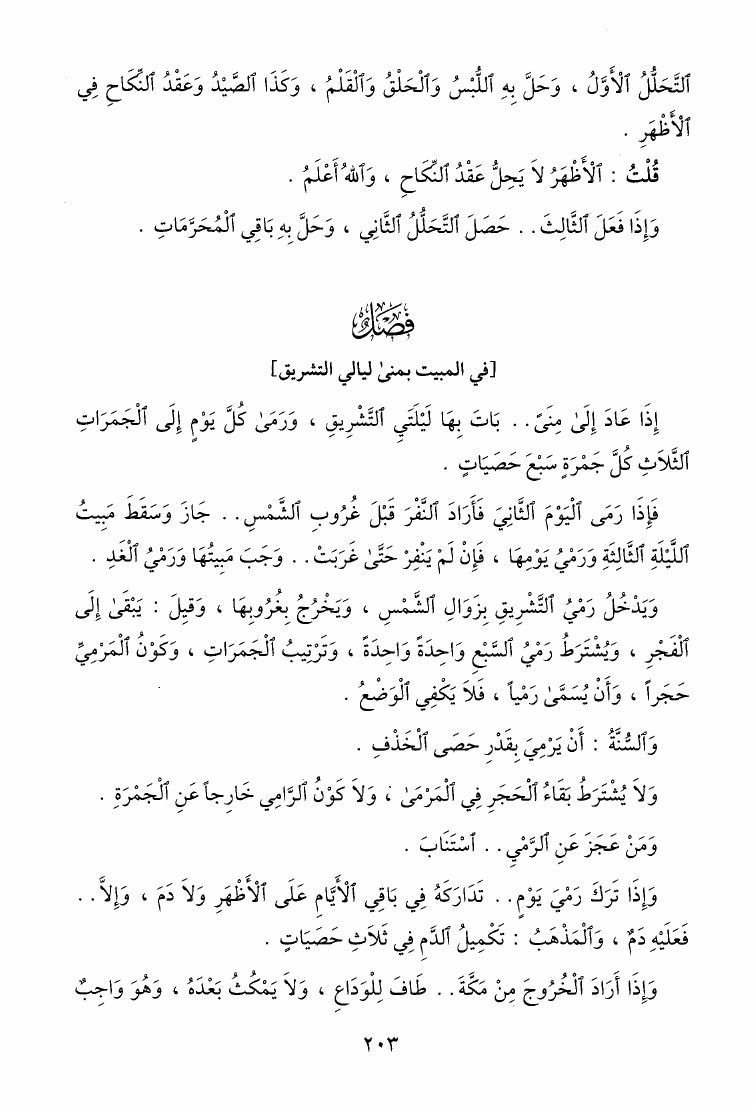 ٱلتَّحَلُّلُ ٱلْأَوَّلُ ، وَحَلَّ بِهِ ٱللُّبْسُ وَٱلْحَلْقُ وَٱلْقَلْمُ ، وَكَذَا ٱلصَّيْدُ وَعَقْدُ ٱلنِّكَاحِ فِي
ٱلْأَظْهَرِ .
قُلْتُ : ٱلْأَظْهَرُ لاَ يَحِلُّ عَقْدُ ٱلنِّكَاحِ ، وَٱللهُ أَعْلَمُ .
وَإِذَا فَعَلَ ٱلثَّالِثَ . . حَصَلَ ٱلتَّحَلُّلُ ٱلثَّانِي ، وَحَلَّ بِهِ بَاقِي ٱلْمُحَرَّمَاتِ .
فَصْلٌ
[في المبيت بمنىٰ ليالي التشريق]
إِذَا عَادَ إِلَىٰ مِنَىً . . بَاتَ بِهَا لَيْلَتَيِ ٱلتَّشْرِيقِ ، وَرَمَىٰ كُلَّ يَوْمٍ إِلَى ٱلْجَمَرَاتِ
ٱلثَّلاَثِ كُلَّ جَمْرَةٍ سَبْعَ حَصَيَاتٍ .
فَإِذَا رَمَى ٱلْيَوْمَ ٱلثَّانِيَ فَأَرَادَ ٱلنَّفْرَ قَبْلَ غُرُوبِ ٱلشَّمْسِ . . جَازَ وَسَقَطَ مَبِيتُ
ٱللَّيْلَةِ ٱلثَّالِثَةِ وَرَمْيُ يَوْمِهَا ، فَإِنْ لَمْ يَنْفِرْ حَتَّىٰ غَرَبَتْ . . وَجَبَ مَبِيتُهَا وَرَمْيُ ٱلْغَدِ .
وَيَدْخُلُ رَمْيُ ٱلتَّشْرِيقِ بِزَوَالِ ٱلشَّمْسِ ، وَيَخْرُجُ بِغُرُوبِهَا ، وَقِيلَ : يَبْقَىٰ إِلَى
ٱلْفَجْرِ ، وَيُشْتَرَطُ رَمْيُ ٱلسَّبْعِ وَاحِدَةً وَاحِدَةً ، وَتَرْتِيبُ ٱلْجَمَرَاتِ ، وَكَوْنُ ٱلْمَرْمِيِّ
حَجَراً ، وَأَنْ يُسَمَّىٰ رَمْياً ، فَلاَ يَكْفِي ٱلْوَضْعُ .
وَٱلسُّنَّةُ : أَنْ يَرْمِيَ بِقَدْرِ حَصَى ٱلْخَذْفِ .
وَلاَ يُشْتَرَطُ بَقَاءُ ٱلْحَجَرِ فِي ٱلْمَرْمَىٰ ، وَلاَ كَوْنُ ٱلرَّامِي خَارِجاً عَنِ ٱلْجَمْرَةِ .
وَمَنْ عَجَزَ عَنِ ٱلرَّمْيِ . . ٱسْتَنَابَ .
وَإِذَا تَرَكَ رَمْيَ يَوْمٍ . . تَدَارَكَهُ فِي بَاقِي ٱلْأَيَّامِ عَلَى ٱلْأَظْهَرِ وَلاَ دَمَ ، وَإِلاَّ . .
فَعَلَيْهِ دَمٌ ، وَٱلْمَذْهَبُ : تَكْمِيلُ ٱلدَّمِ فِي ثَلاَثِ حَصَيَاتٍ .
وَإِذَا أَرَادَ ٱلْخُرُوجَ مِنْ مَكَّةَ . . طَافَ لِلْوَدَاعِ ، وَلاَ يَمْكُثُ بَعْدَهُ ، وَهُوَ وَاجِبٌ
٢٠٣